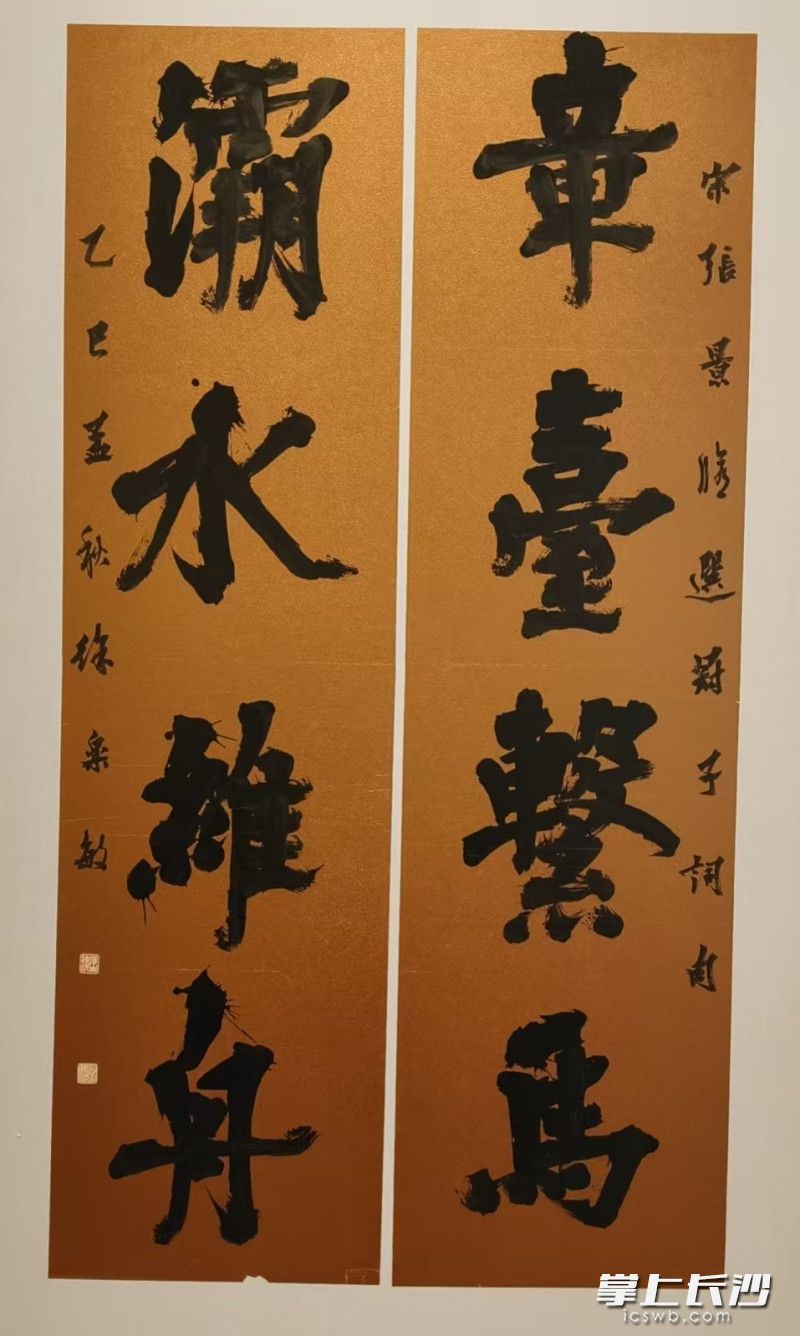 宋張景脩選冠子詞句
章臺繫馬
灞水維舟
乙巳孟秋徐 敏
掌上长沙
icswb.com